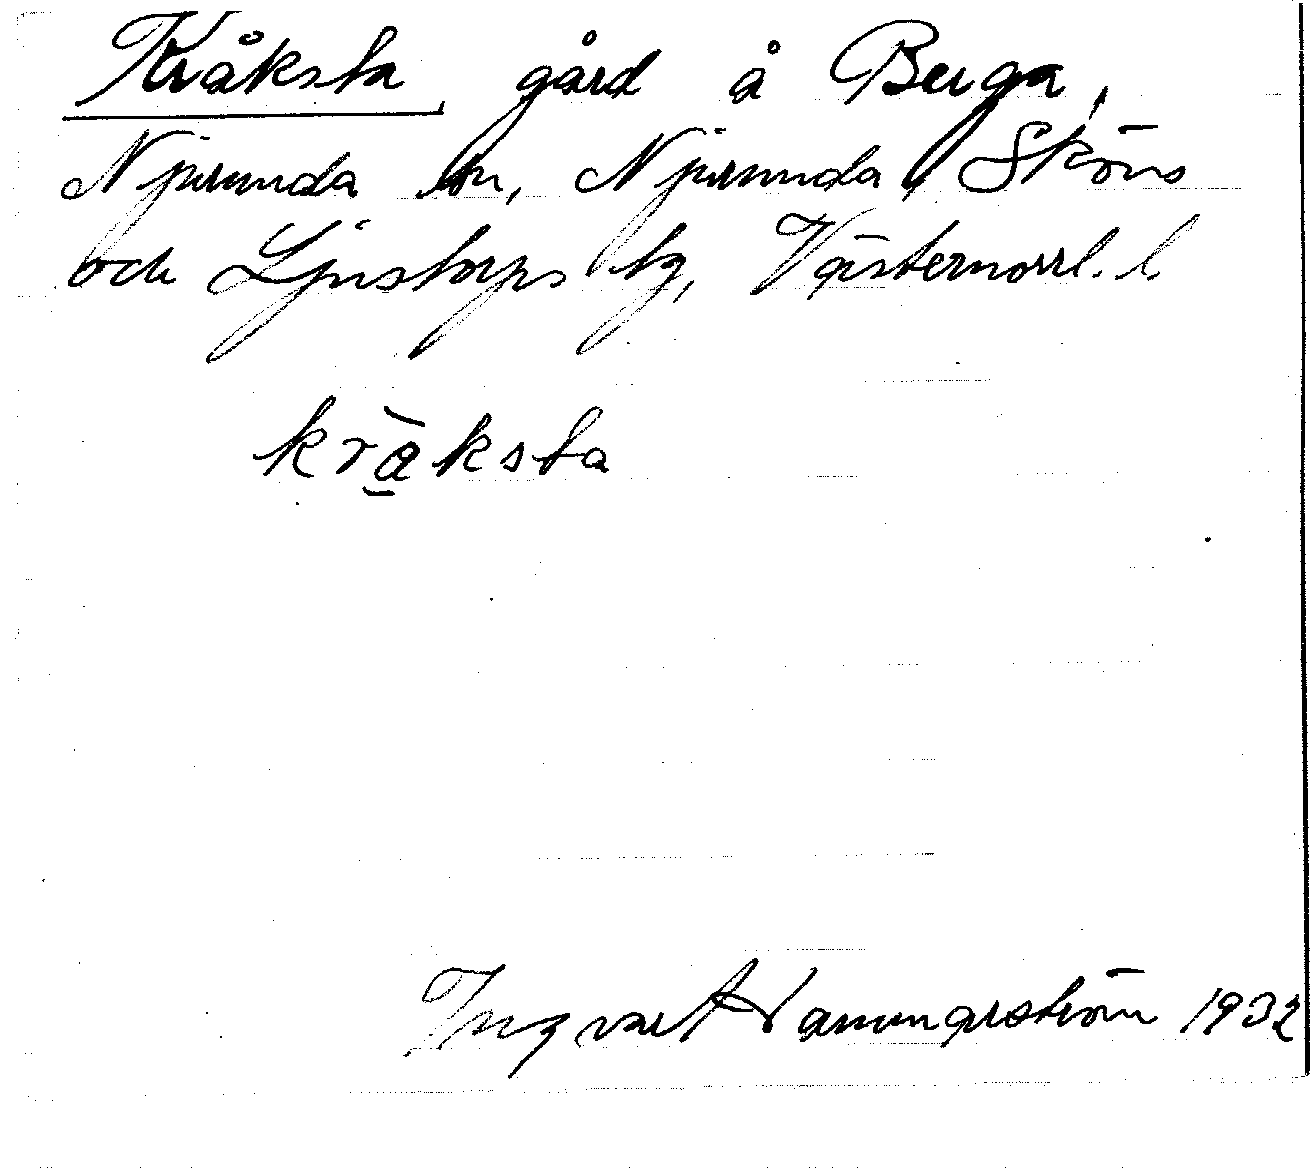 Kråksta, gård å Berga,
Njurunda sn, Njurunda, Sköns
och Ljustorps tg, Västernorrl. l.
kràksta
Ingvar Hammarström 1932